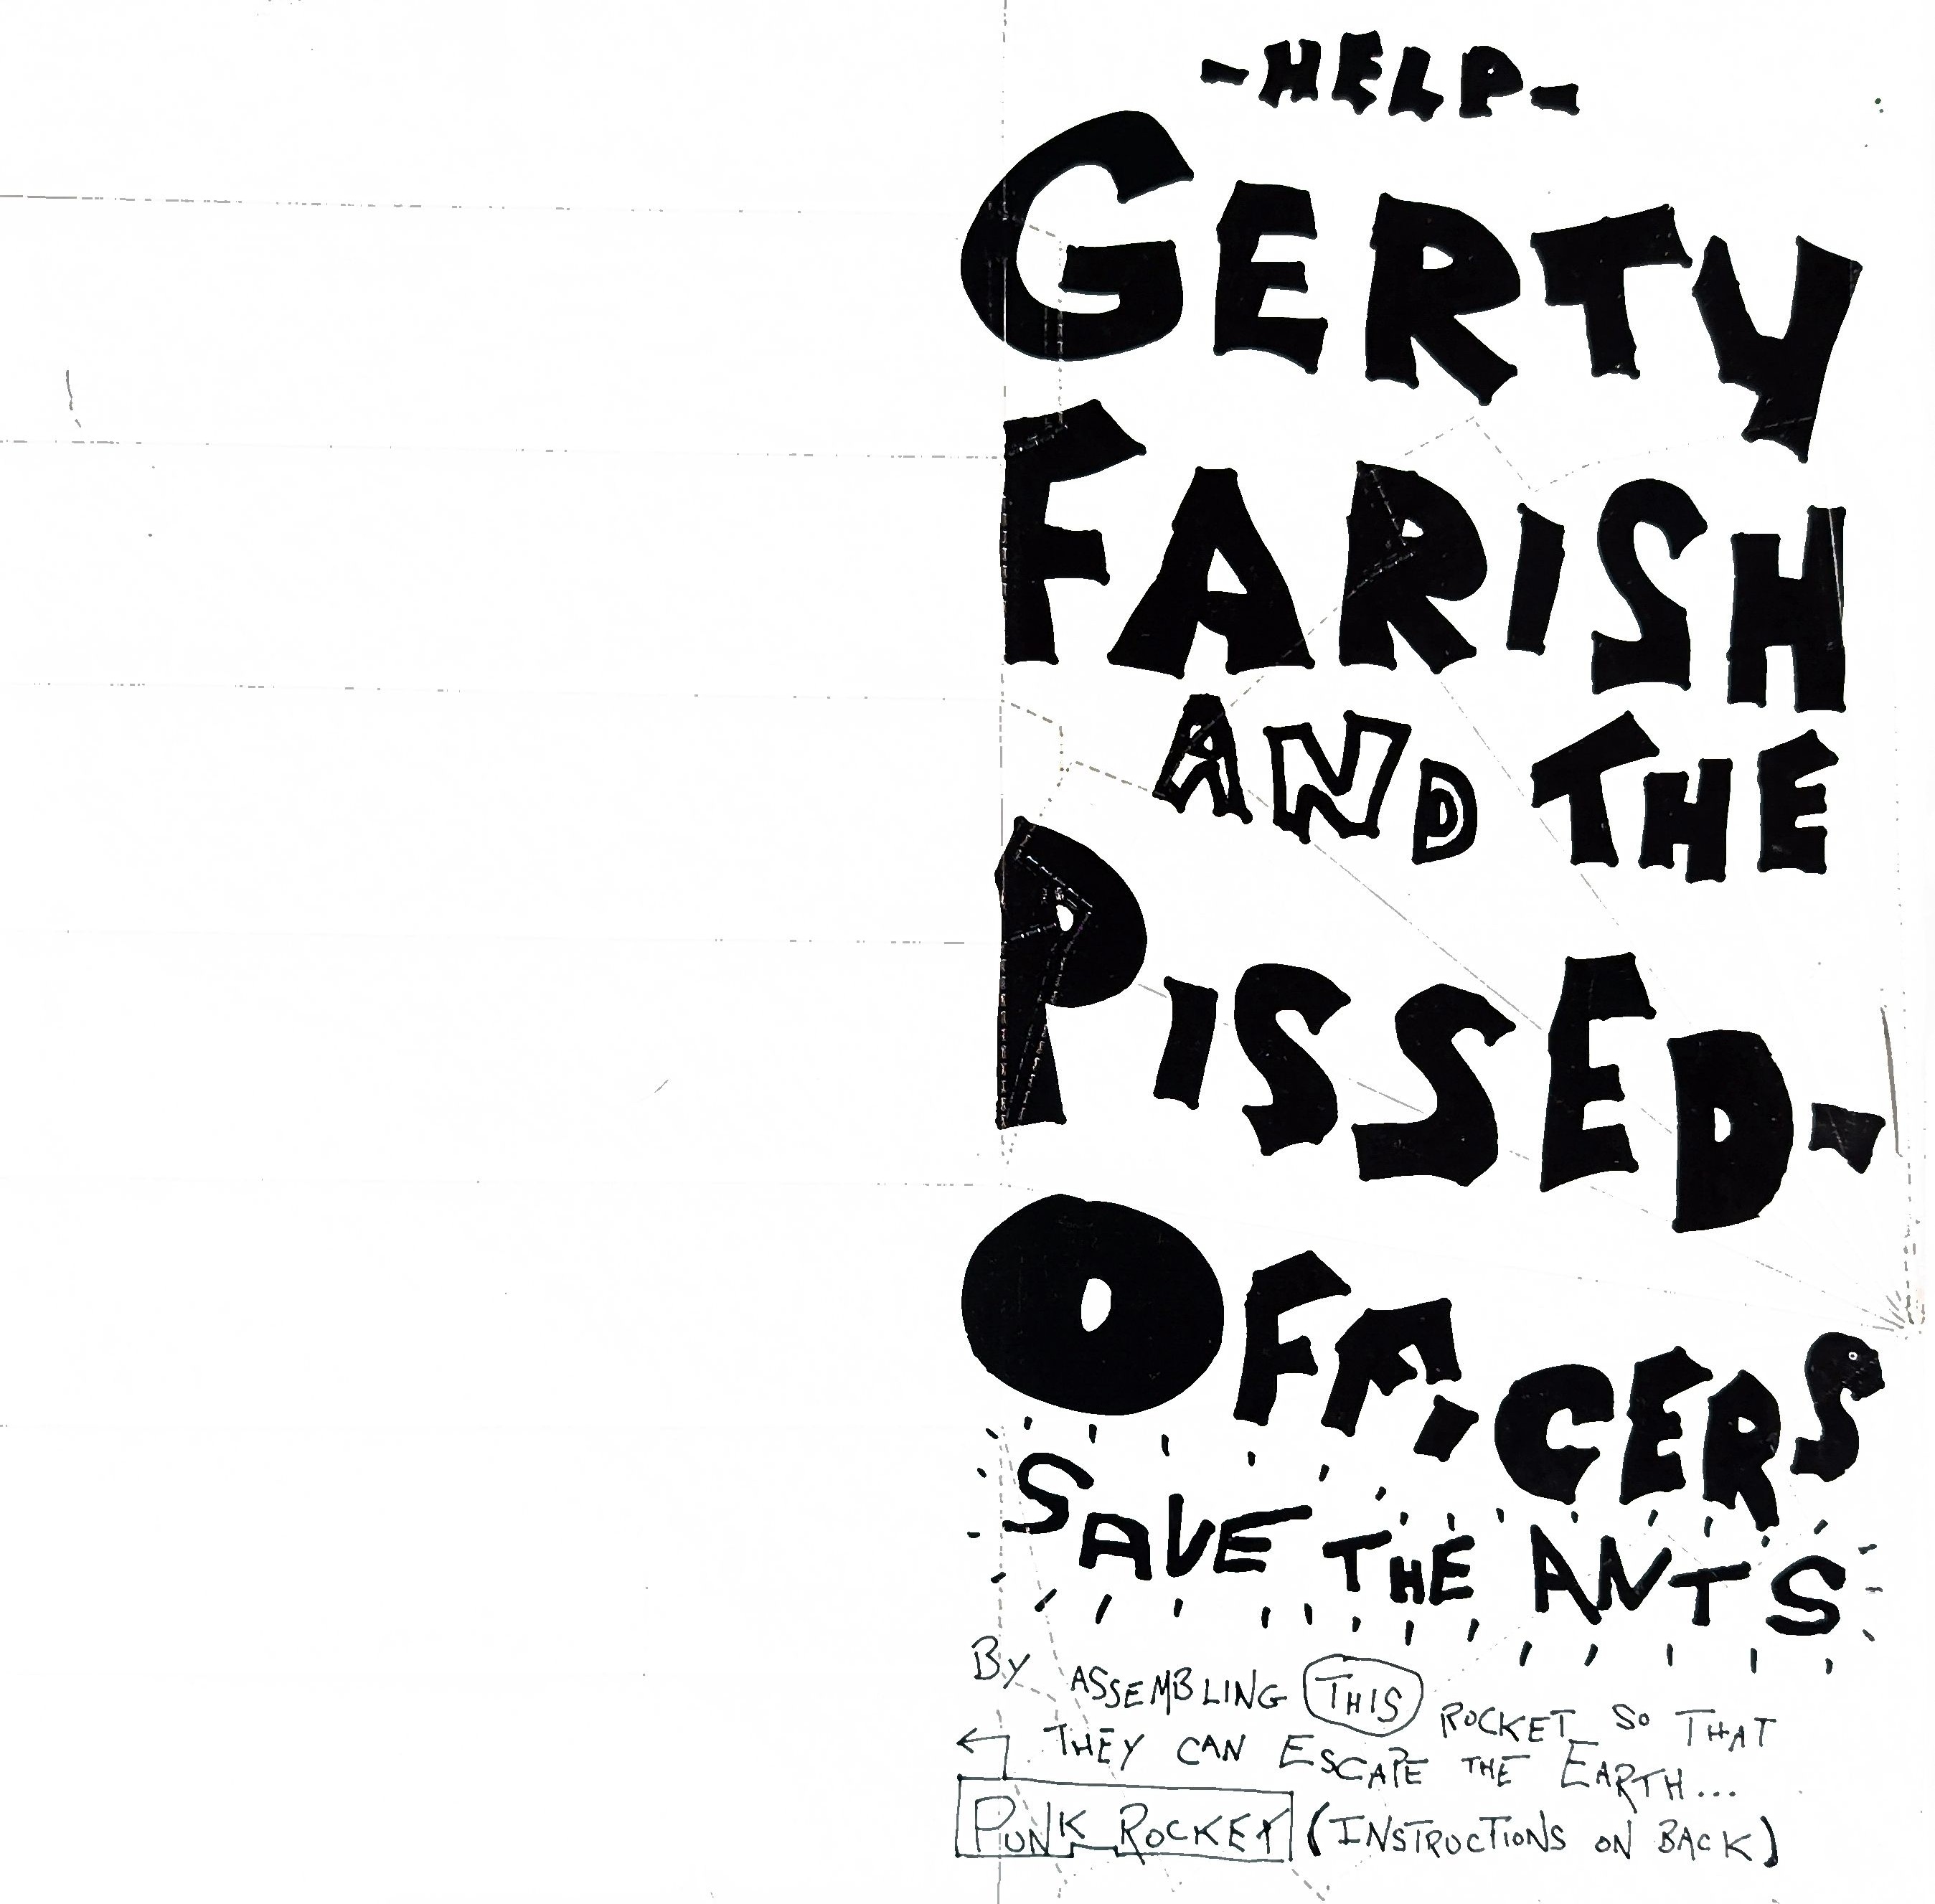 -HELP-
GERTY
FARISH
AND THE
PISSED-
OFFICERS
SAVE THE ANTS
By ASSEMBLING THIS ROCKET SO THAT
THEY CAN ESCAPE THE EARTH...
PUNK ROCKET (INSTRUCTIONS ON BACK)